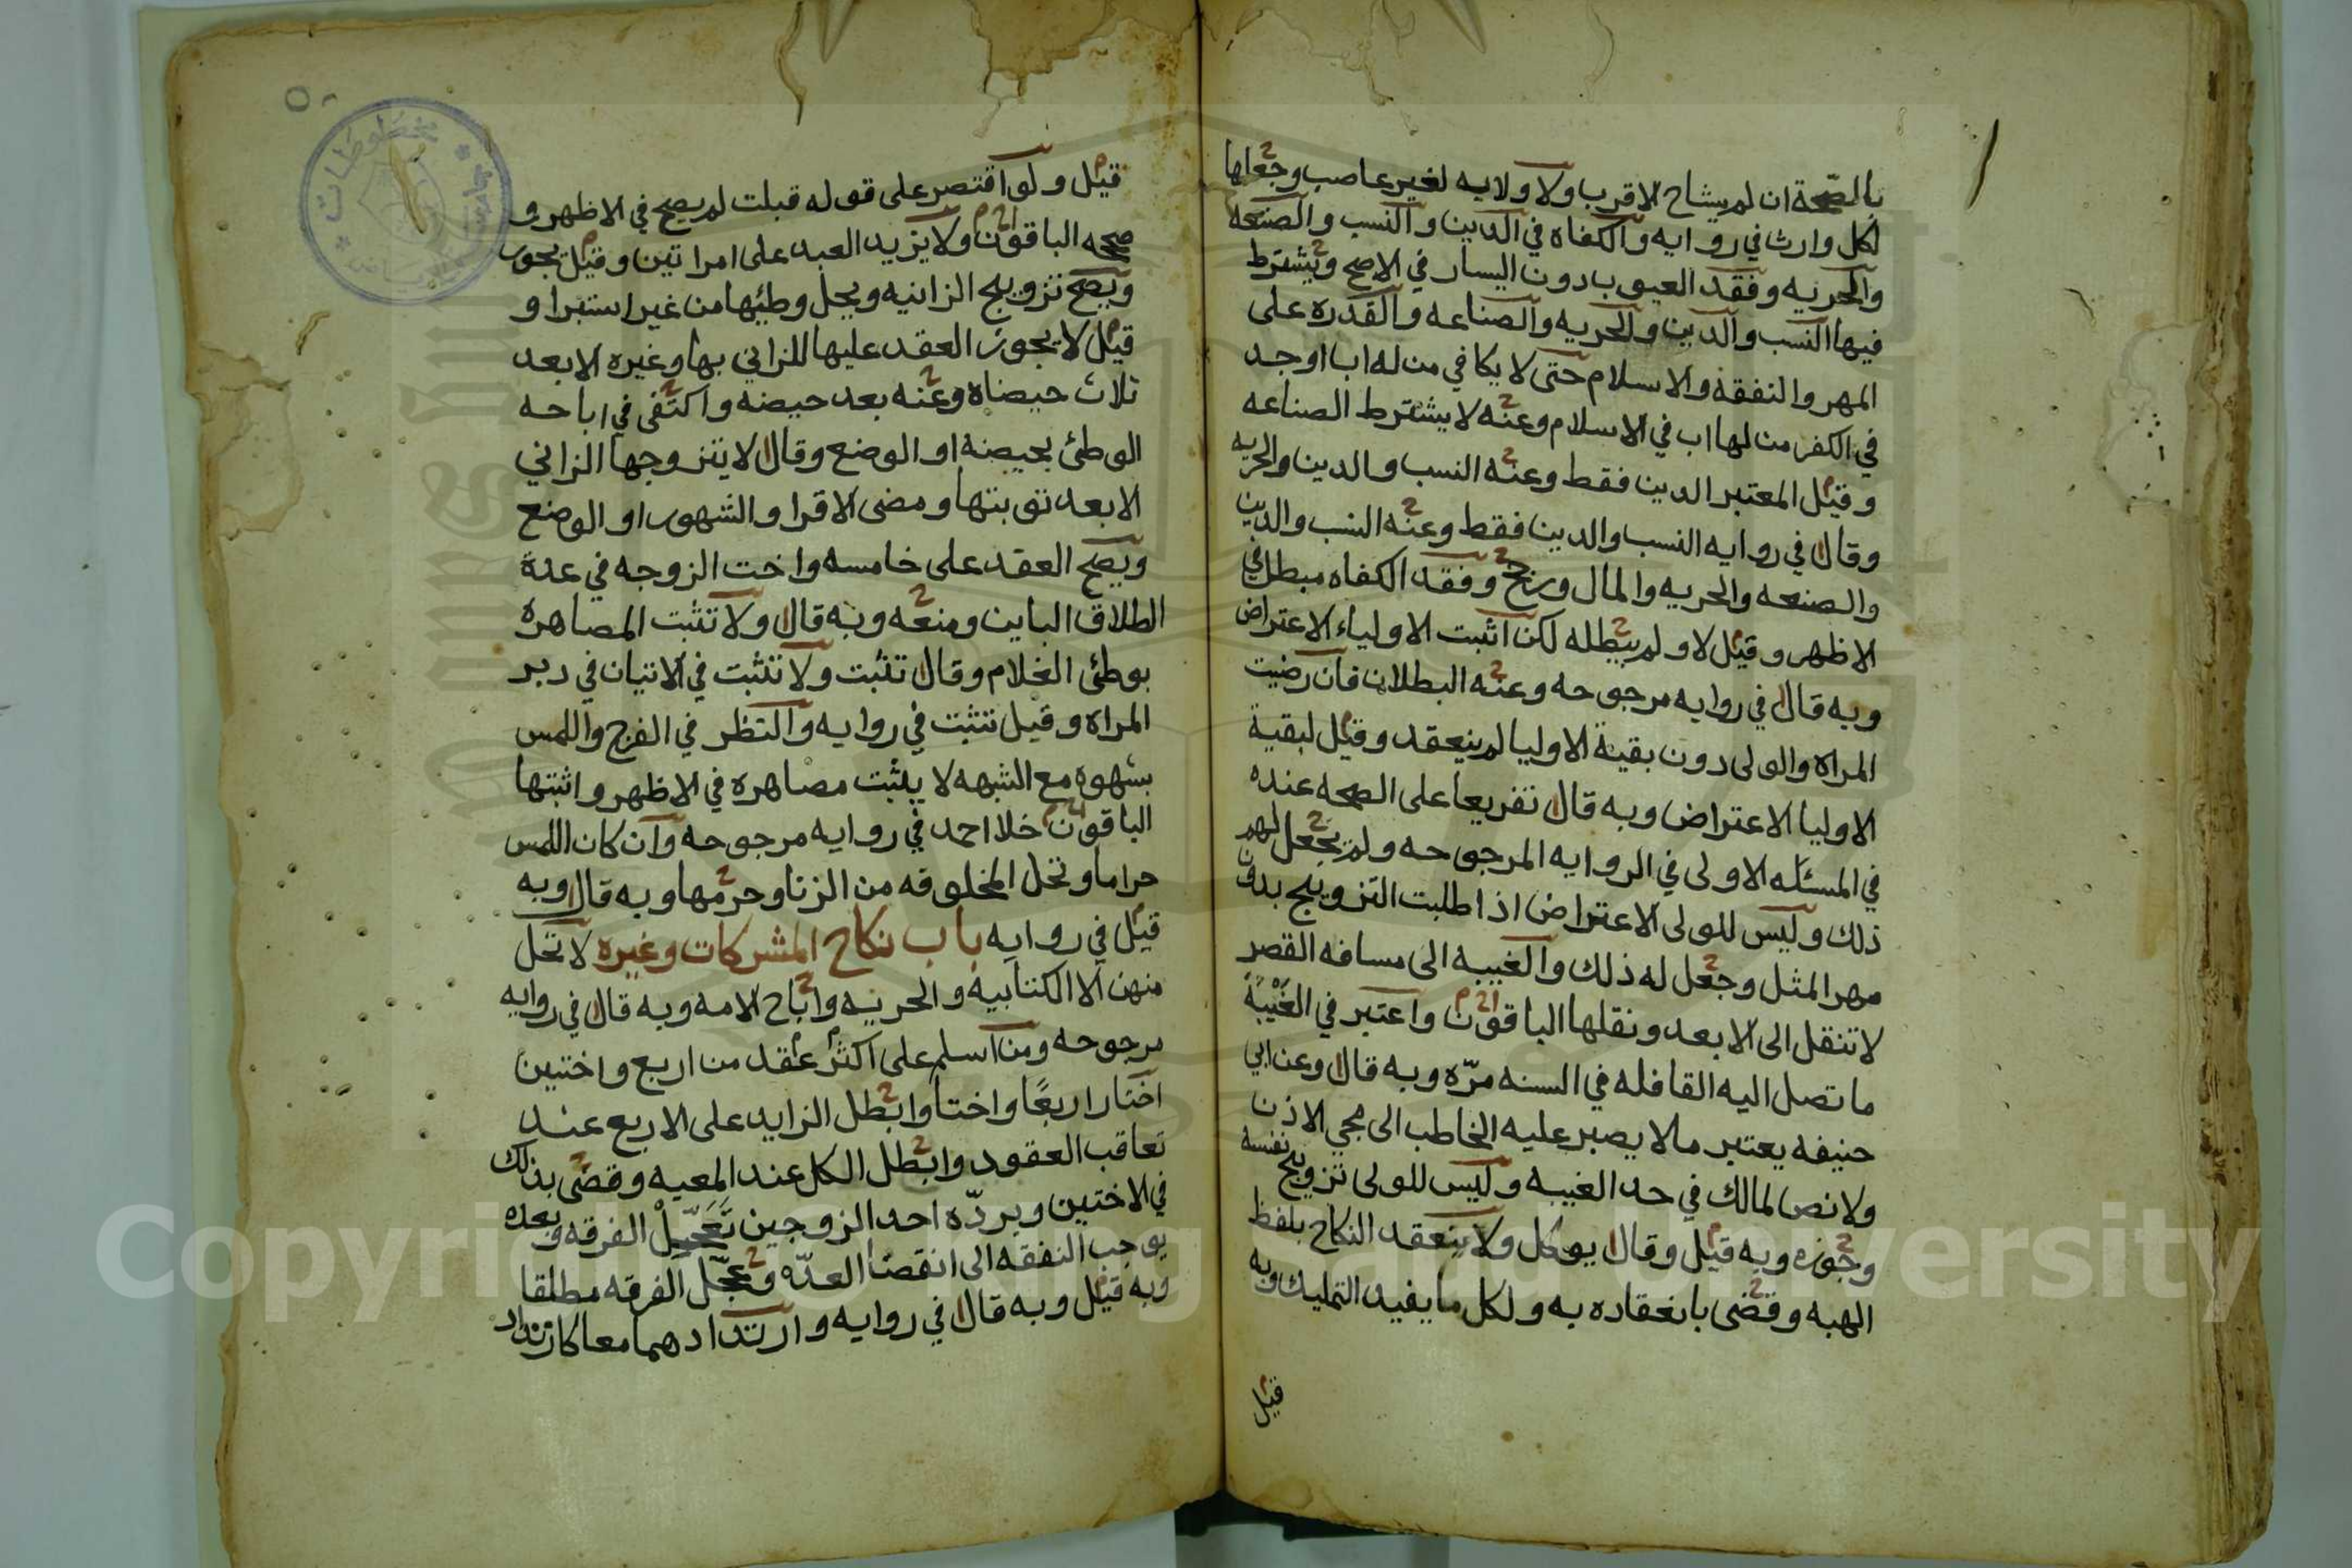 بالصحة ان لم يشاح الاقرب ولا ولايه لغير عاصب وجعلها
لكل وارث في روايه والكفاه في الدين والنسب والصنعه
والحريه وفقد العيوب دون اليسار في الاصح ويشترط
فيها النسب والدين والحريه والصناعه والقدره على
المهر والنفقة والاسلام حتى لا يكافي من له اب او جد
في الكفر من لها اب في الاسلام وعنه لا يشترط الصناعه
وقيل المعتبر الدين فقط وعنه النسب والدين والحريه
وقال في روايه النسب والدين فقط وعنه النسب والدين
والصنعه والحريه والمال ورجح وفقد الكفاه مبطل في
الاظهر وقيل لا ولم يبطله لكن اثبت الاولياء الاعتراض
وبه قال في روايه مرجوحه وعنه البطلان فان رضيت
المراه والولى دون بقية الاوليا لم ينعقد وقيل لبقية
الاوليا الاعتراض وبه قال تفريعا على الصحه عنده
في المسئله الاولى في الروايه المرجوحه ولم يجعل لهم
ذلك وليس للولى الاعتراض اذا طلبت التزويج بدون
مهر المثل وجعل له ذلك والغيبه الى مسافه القصر
لا تنقل الى الابعد ونقلها الباقون واعتبر في الغَيْبَة
ما تصل اليه القافله في السنه مرّه وبه قال وعن ابي
حنيفه يعتبر مالا يصبر عليه الخاطب الى مجي الاذن
ولا نص لمالك في حد الغيبه وليس للولى تزويج نفسه
وجوزه وبه قيل وقال يوكل ولا ينعقد النكاح بلفظ
الهبه وقضى بانعقاده به ولكل ما يفيد التمليك وبه
قيل
قيل ولو اقتصر على قوله قبلت لم يصح في الاظهر و
صححه الباقون ولا يزيد العبد على امراتين وقيل يجوز
ويصح تزويج الزانيه ويحل وطيها من غير استبرا و
قيل لا يجوز العقد عليها للزاني بها وغيره الا بعد
ثلاث حيضاه وعنه بعد حيضه واكتفى في اباحه
الوطئ بحيضة او الوضع وقال لا يتزوجها الزاني
الا بعد توبتها ومضى الاقرا والشهور او الوضع
ويصح العقد على خامسه واخت الزوجه في عدة
الطلاق الباين ومنعه وبه قال ولا تثبت المصاهره
بوطئ الغلام وقال تثبت ولا تثبت في الاتيان في دبر
المراه وقيل تثبت في روايه والنظر في الفرج واللمس
بشهوه مع الشبهه لا يثبت مصاهره في الاظهر واثبتها
الباقون خلا احمد في روايه مرجوحه وان كان اللمس
حراما وتحل المخلوقه من الزنا وحرمها وبه قال وبه
قيل في روايه باب نكاح المشركات وغيره لا تحل
منهن الا الكتابيه والحريه واباح الامه وبه قال في روايه
مرجوحه ومن اسلم على اكثر عقد من اربع واختين
اختار اربعًا واختا وابطل الزايد على الاربع عند
تعاقب العقود وابطل الكل عند المعيه وقضى بذلك
في الاختين وبردّه احد الزوجين تَعَجّيل الفرقه وبعده
يوجب النفقه الى انقضا العدّه وعجّل الفرقه مطلقا
وبه قيل وبه قال في روايه وارتدادهما معا كارتداد